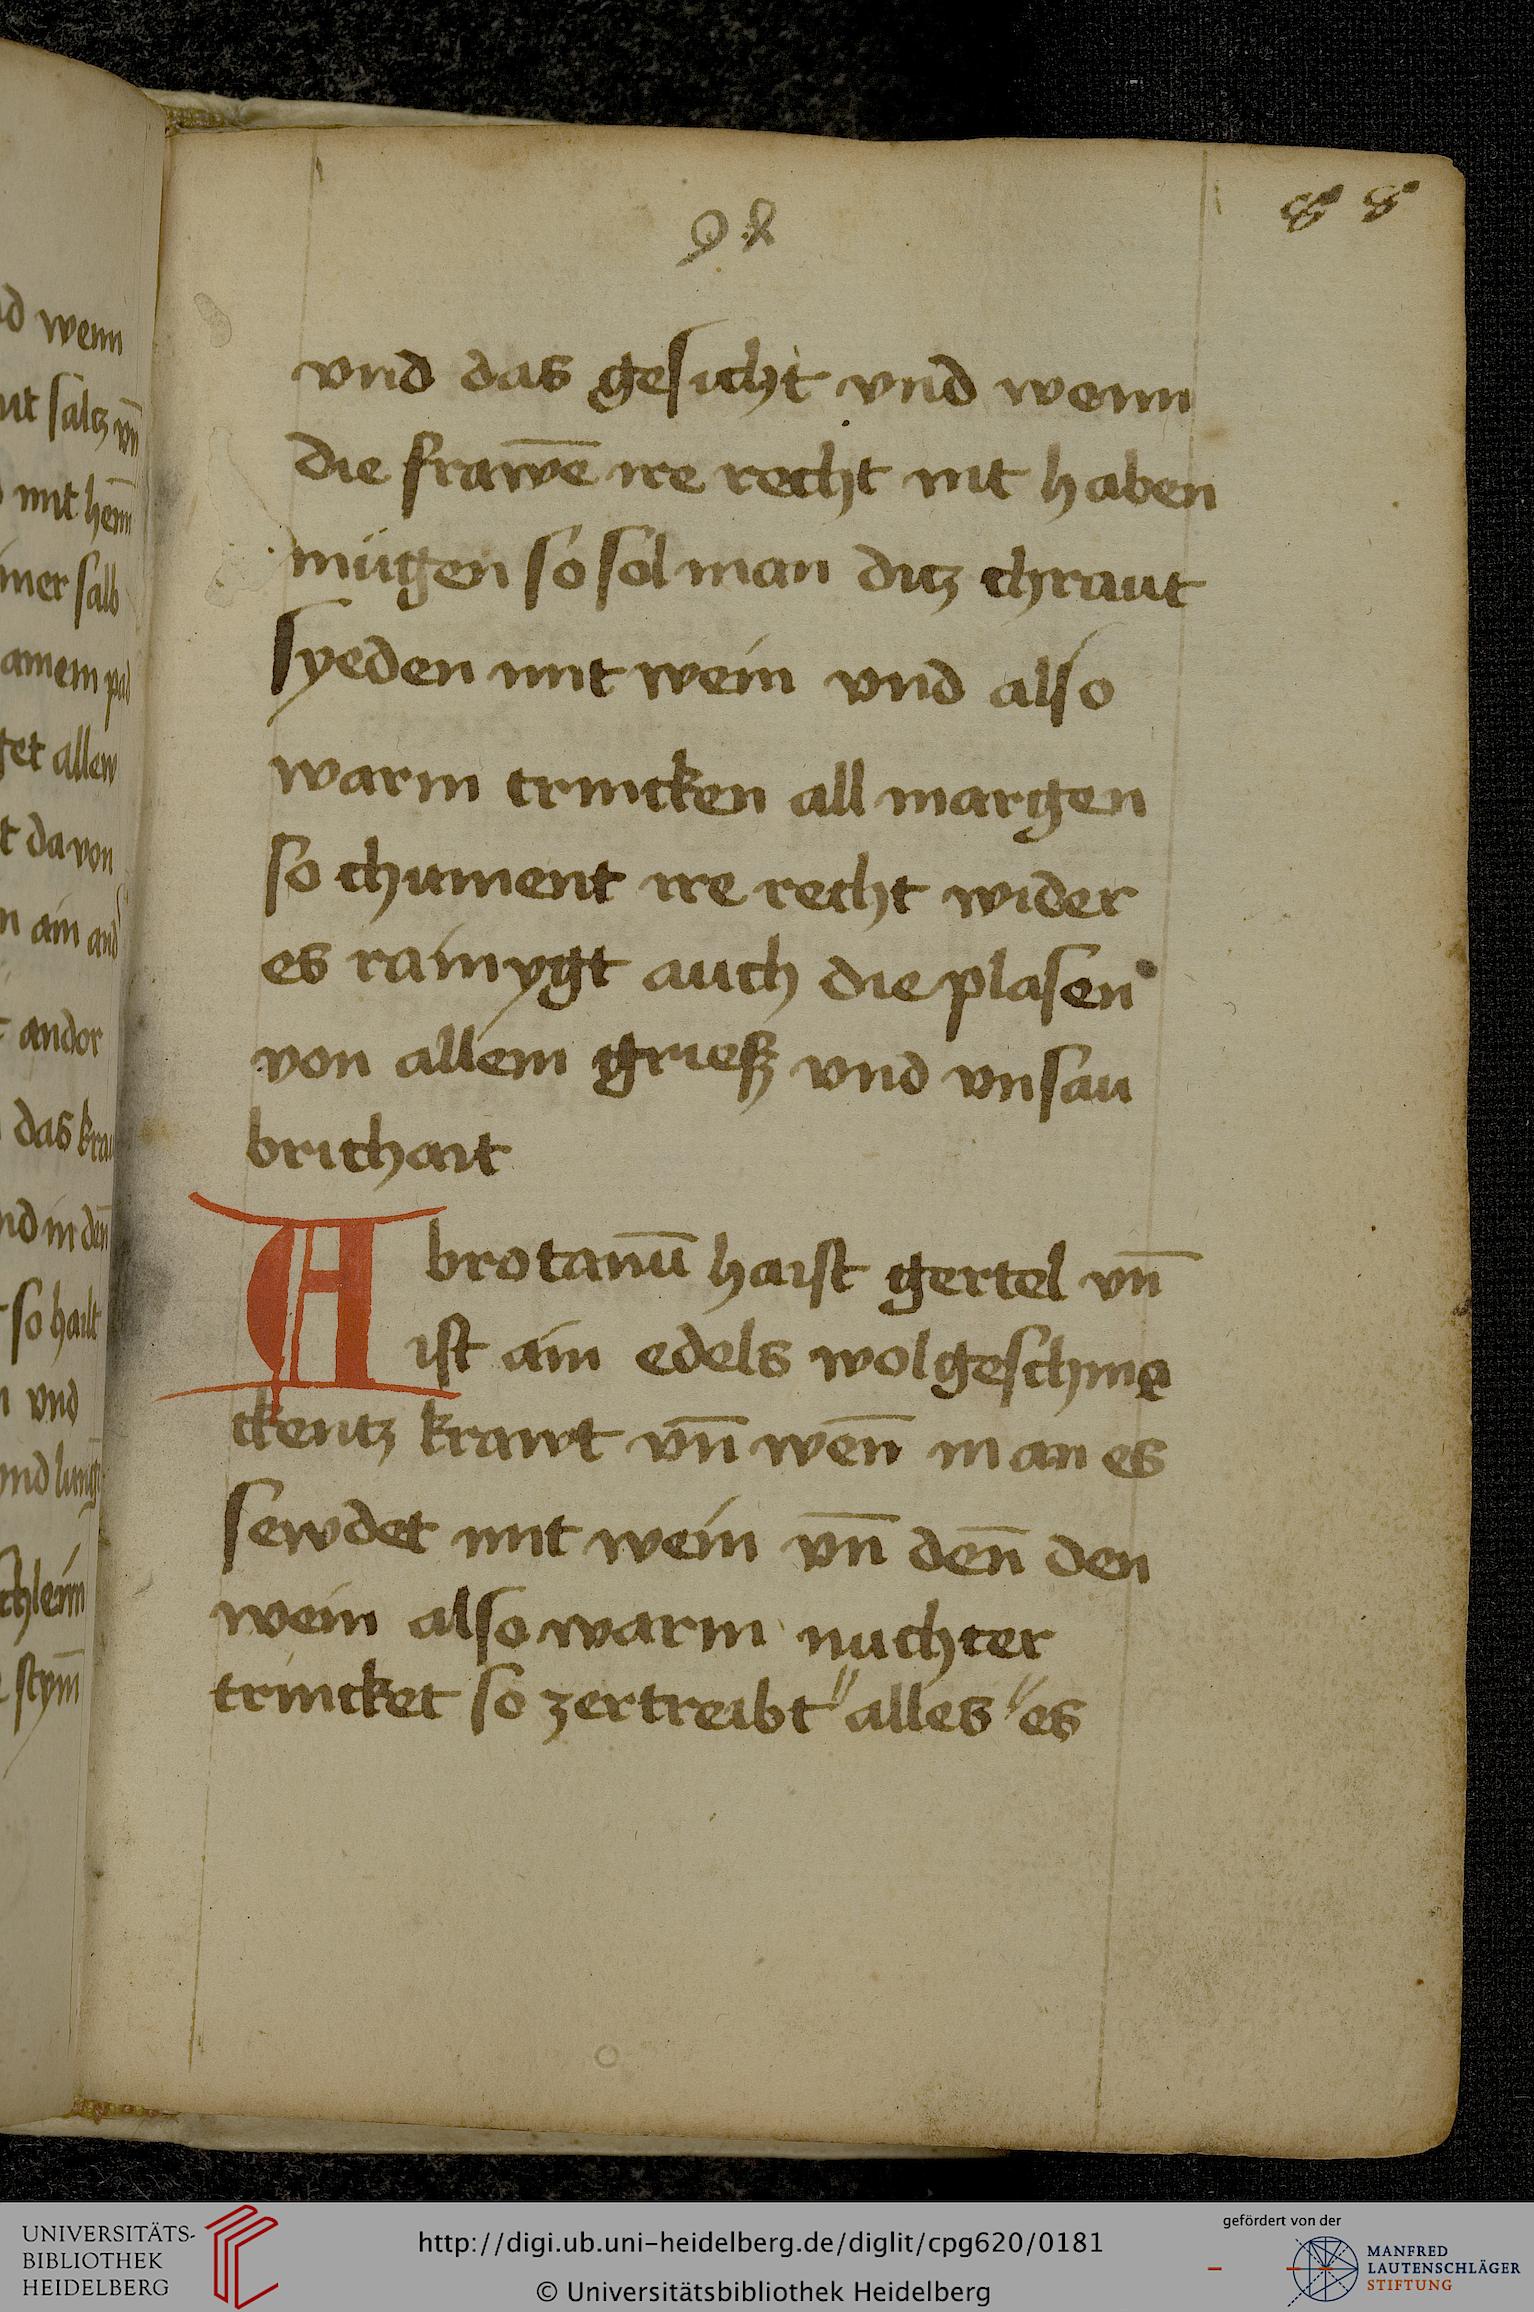 98
88
vnd das gesicht vnd wenn
die frawē ire recht nit haben
mügen so sol man ditz chraut
syeden mit wein vnd also
warm trincken all margen
so chument ire recht wider
es rainygt auch die plasen
von allem grieß vnd vnsau
brichait
Abrotanū haist gertel vn̄
ist ain edels wolgeschme
ckentz krawt vn̄ wen̄ man es
sewdet mit wein vn̄ den̄ den
wein also warm nuchter
trincket so zertreibt " alles " es
d wenn
ut saltz vn̄
mit henn̄
mer salb
amem pad
tet allew
t da von
n ain and
andor
das krau
nd in den̄
so hailt
n vnd
vnd lung
chleim
stym̄
UNIVERSITÄTS-
BIBLIOTHEK
HEIDELBERG
http://digi.ub.uni-heidelberg.de/diglit/cpg620/0181
© Universitätsbibliothek Heidelberg
gefördert von der
MANFRED
LAUTENSCHLÄGER
STIFTUNG